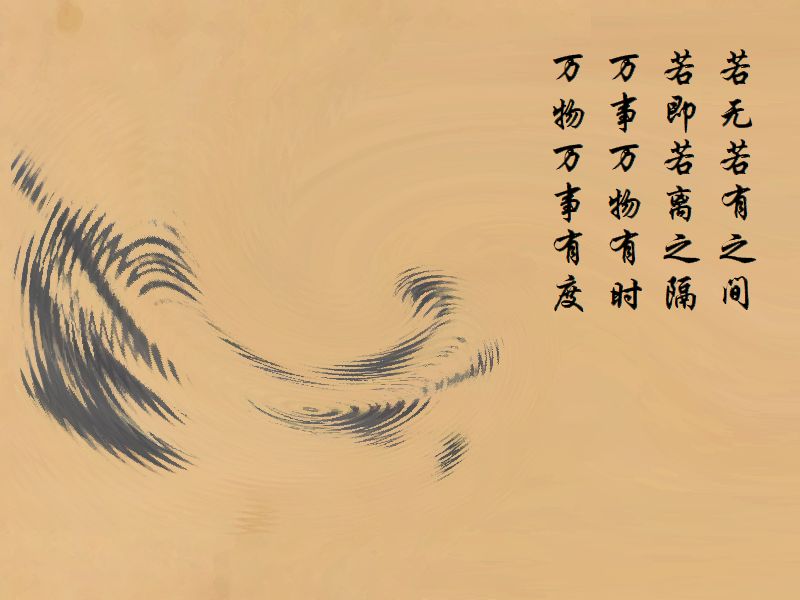 若无若有之间
若即若离之隔
万事万物有时
万物万事有度